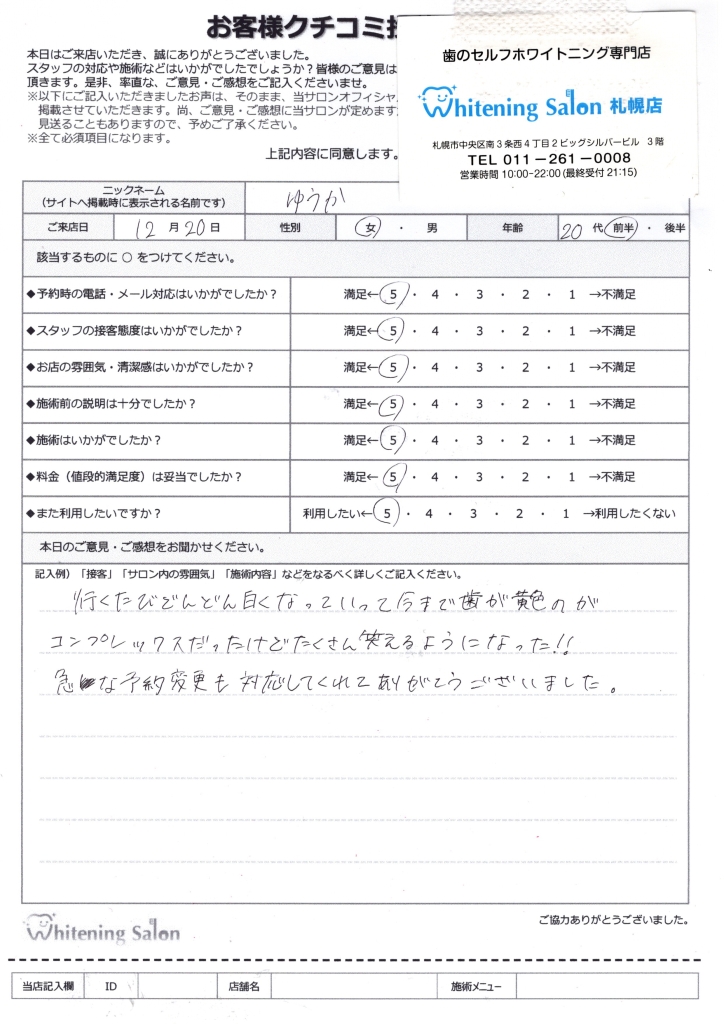 お客様クチコミ
本日はご来店いただき、誠にありがとうございました。
スタッフの対応や施術などはいかがでしたでしょうか？皆様のご意見は
頂きます。是非、率直な、ご意見・ご感想をご記入くださいませ。
※以下にご記入いただきましたお声は、そのまま、当サロンオフィシャ
掲載させていただきます。尚、ご意見・ご感想に当サロンが定めます
見送ることもありますので、予めご了承ください。
※全て必須項目になります。
上記内容に同意します。
歯のセルフホワイトニング専門店
Whitening Salon 札幌店
札幌市中央区南3条西4丁目2ビッグシルバービル 3階
TEL 011-261-0008
営業時間 10:00-22:00 (最終受付 21:15)
ニックネーム
(サイトへ掲載時に表示される名前です) ゆうか
ご来店日 12 月 20 日 性別 女 ・ 男 年齢 20 代 前半 ・ 後半
該当するものに ○ をつけてください。
◆予約時の電話・メール対応はいかがでしたか？ 満足← 5 ・ 4 ・ 3 ・ 2 ・ 1 →不満足
◆スタッフの接客態度はいかがでしたか？ 満足← 5 ・ 4 ・ 3 ・ 2 ・ 1 →不満足
◆お店の雰囲気・清潔感はいかがでしたか？ 満足← 5 ・ 4 ・ 3 ・ 2 ・ 1 →不満足
◆施術前の説明は十分でしたか？ 満足← 5 ・ 4 ・ 3 ・ 2 ・ 1 →不満足
◆施術はいかがでしたか？ 満足← 5 ・ 4 ・ 3 ・ 2 ・ 1 →不満足
◆料金（値段的満足度）は妥当でしたか？ 満足← 5 ・ 4 ・ 3 ・ 2 ・ 1 →不満足
◆また利用したいですか？ 利用したい← 5 ・ 4 ・ 3 ・ 2 ・ 1 →利用したくない
本日のご意見・ご感想をお聞かせください。
記入例）「接客」「サロン内の雰囲気」「施術内容」などをなるべく詳しくご記入ください。
行くたびどんどん白くなっていって今まで歯が黄色のが
コンプレックスだったけどたくさん笑えるようになった!!
急な予約変更も対応してくれてありがとうございました。
Whitening Salon
ご協力ありがとうございました。
当店記入欄 ID 店舗名 施術メニュー